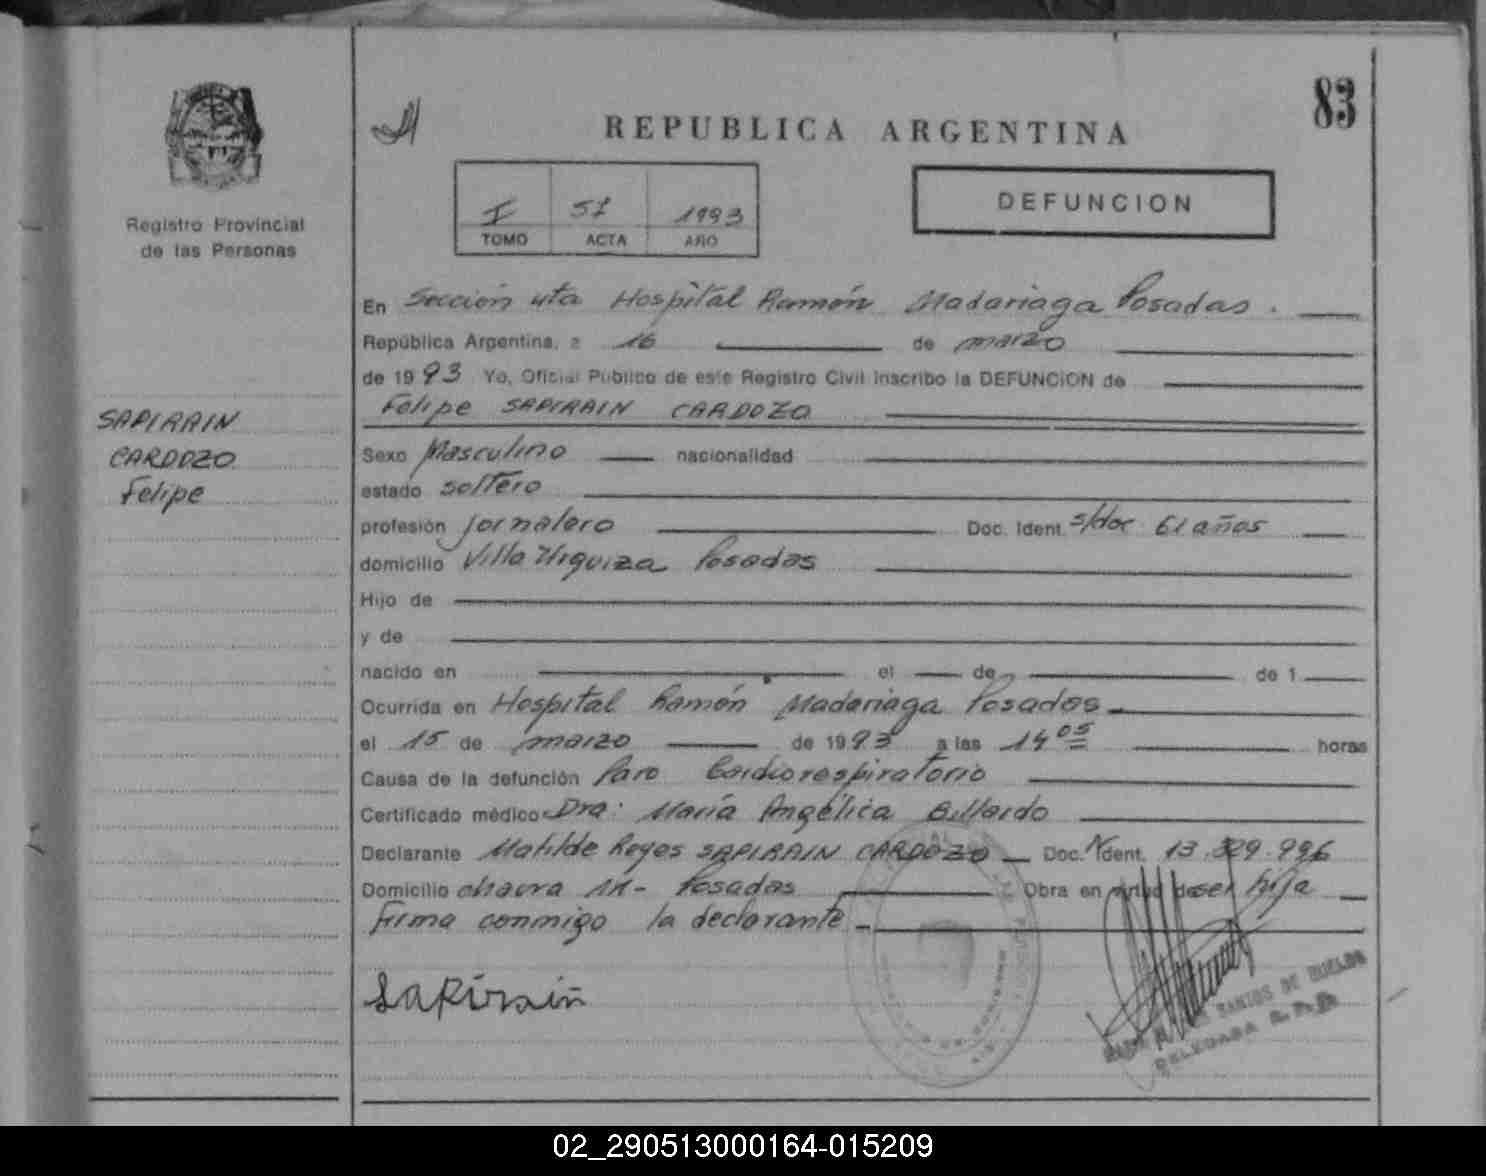 83
REPUBLICA ARGENTINA
Registro Provincial
de las Personas
I 51 1993
TOMO ACTA AÑO
DEFUNCION
SAPIRAIN
CARDOZO
Felipe
En Sección 4ta Hospital Ramón Madariaga Posadas.
República Argentina, a 16 de marzo
de 1993 Yo, Oficial Público de este Registro Civil inscribo la DEFUNCION de
Felipe SAPIRAIN CARDOZO
Sexo Masculino nacionalidad
estado soltero
profesión jornalero Doc. Ident. s/doc 61 años
domicilio Villa Urquiza Posadas
Hijo de
y de
nacido en el de de 1
Ocurrida en Hospital Ramón Madariaga Posadas
el 15 de marzo de 1993 a las 14 05 horas
Causa de la defunción Paro Cardiorespiratorio
Certificado médico Dra: María Angélica Billardo
Declarante Matilde Reyes SAPIRAIN CARDOZO Doc. Ident. 13.329.996
Domicilio chacra Posadas Obra en virtud de ser hija
Firma conmigo la declarante
Sapirain
SANTOS DE
DELEGADA R.P.P.
02_290513000164-015209